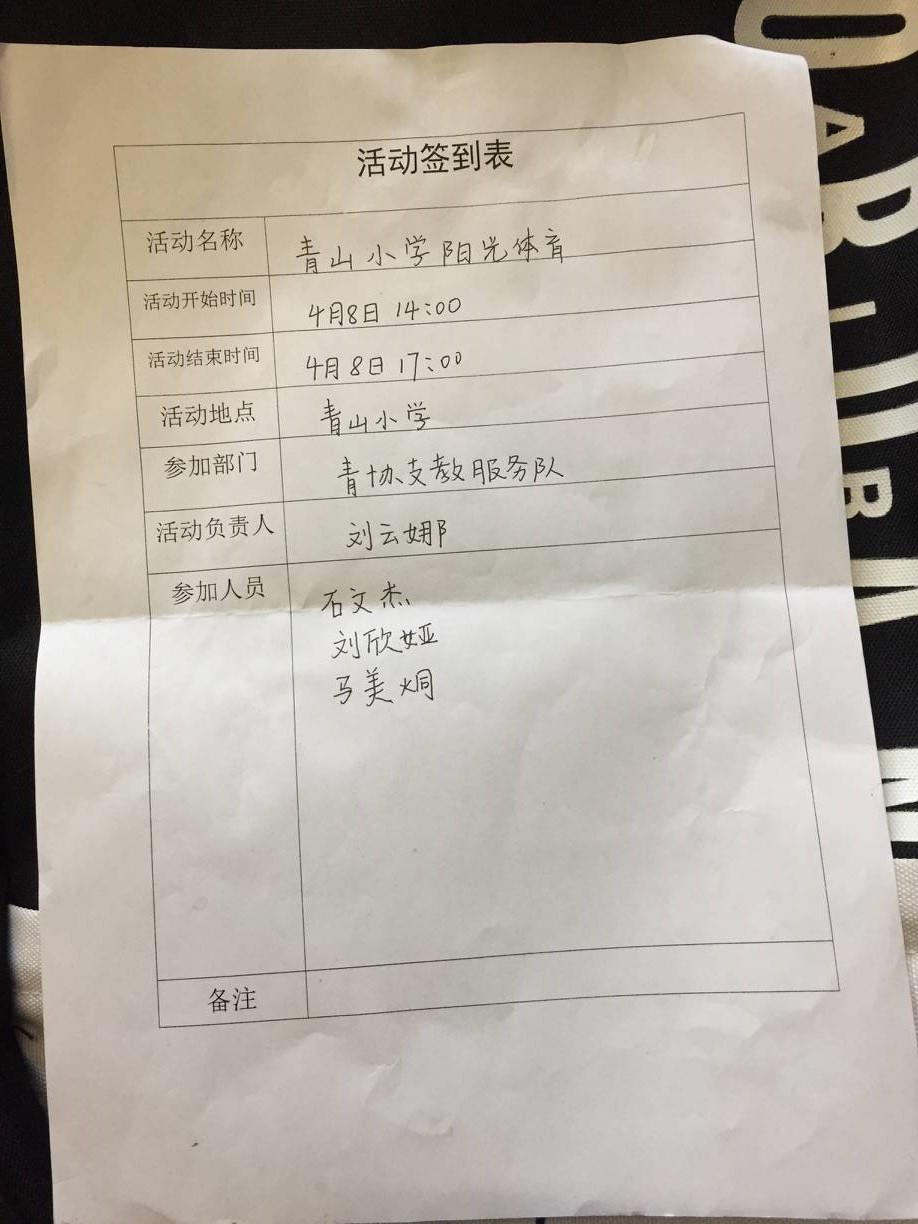 活动签到表
活动名称 青山小学阳光体育
活动开始时间 4月8日 14:00
活动结束时间 4月8日 17:00
活动地点 青山小学
参加部门 青协支教服务队
活动负责人 刘云娜
参加人员 石文杰
刘欣娅
马美烔
备注